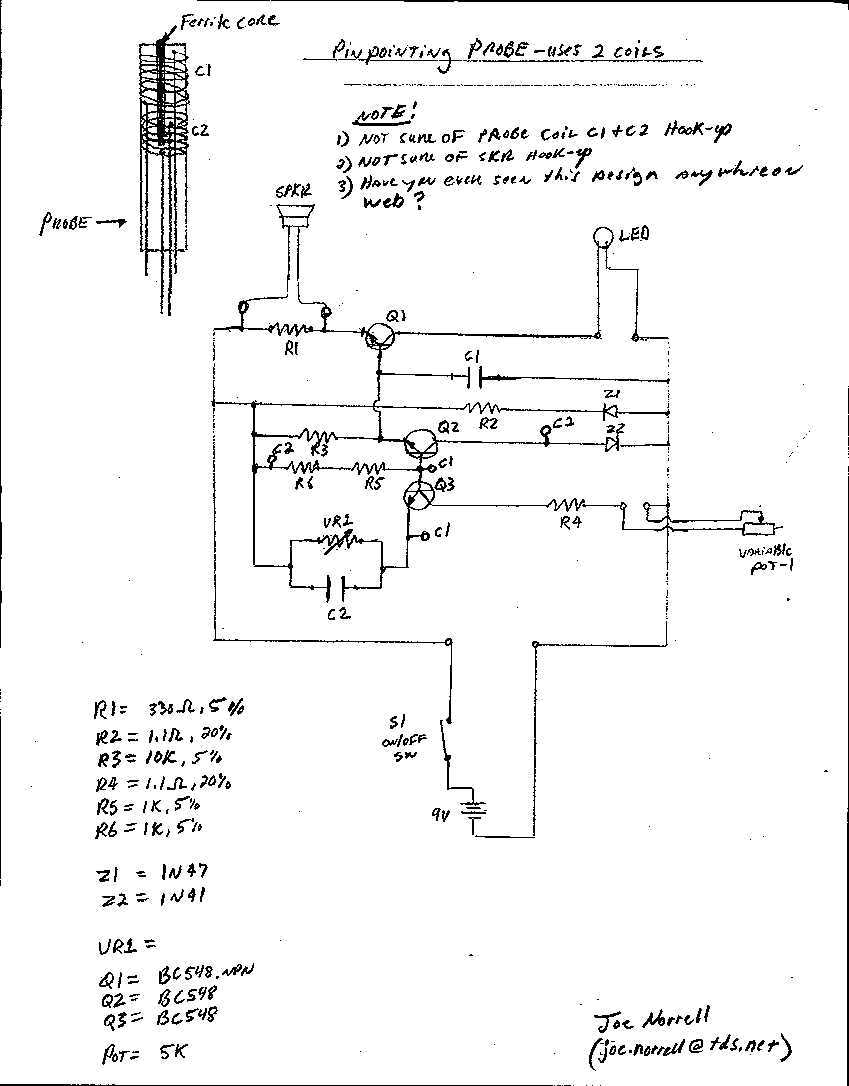 Ferrite core
C1
C2
PROBE
PINPOINTING PROBE - uses 2 coils
NOTE!
1) NOT sure OF PROBE COIL C1 + C2 Hook-up
2) NOT sure OF SKR Hook-up
3) Have you ever seen this Design anywhere on
web?
SPKR
LED
Q1
R1
C1
Z1
R2
Q2
C2
Z2
R3
C2
C1
R6
R5
Q3
VR1
R4
C1
VARIABLE
POT-1
C2
S1
ON/OFF
SW
9V
R1= 330Ω, 5%
R2 = 1.1Ω, 20%
R3 = 10K, 5%
R4 = 1.1Ω, 20%
R5 = 1K, 5%
R6 = 1K, 5%
Z1 = 1N47
Z2 = 1N41
VR1 =
Q1= BC548.NPN
Q2= BC548
Q3= BC548
POT= 5K
Joe Norrell
(joe.norrell@tds.net)